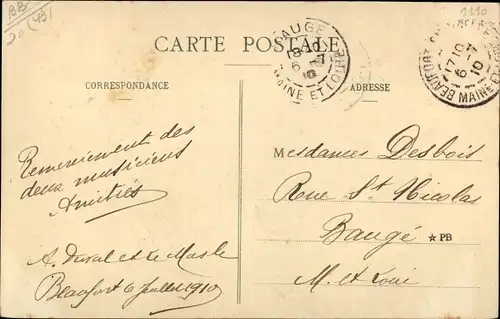 BB
CARTE POSTALE
BAUGÉ
18-10
6-7
10
MAINE ET LOIRE
17-10
6-7
10
BEAUFORT
MAINE
CORRESPONDANCE
ADRESSE
Remerciement des
deux musiciens
Amitiés
A. Duval et Le Masle
Beaufort 6 Juillet 1910
Mesdames Desbois
Rue St Nicolas
Baugé
★ PB
M. et Loire